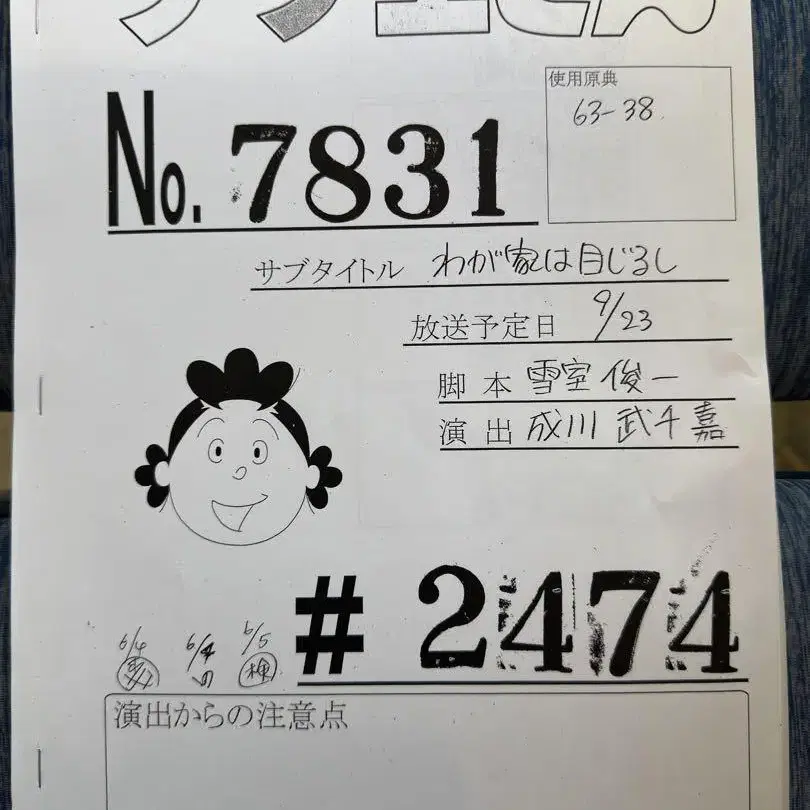 サザエさん
使用原典
63-38
No. 7831
サブタイトル わが家は目じるし
放送予定日 9/23
脚本 雪室俊一
演出 成川武千嘉
# 2474
6/4 6/4 6/5
演出からの注意点